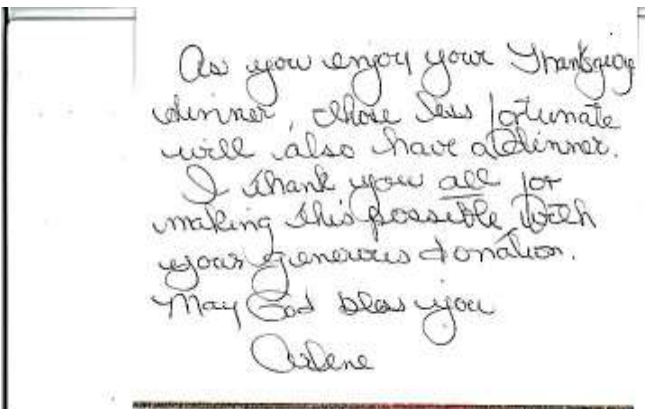 As you enjoy your Thanksgiving
dinner, those less fortunate
will also have a dinner.
I thank you all for
making this possible with
your generous donation.
May God bless you
Arlene